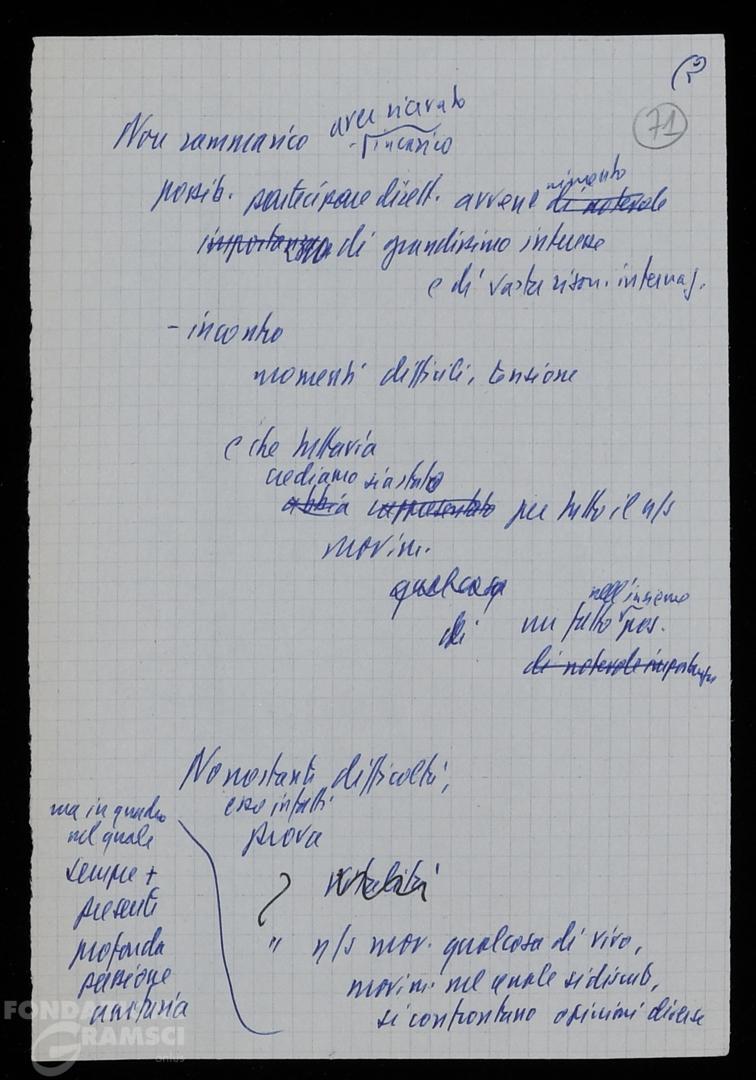 71
Non rammarico aver ricevuto
incarico
possib. partecipare dirett. avvenimento di notevole
importanza di grandissimo interesse
e di vasta rison. internaz.
- incontro
momenti difficili, tensione
e che tuttavia
crediamo sia stato
abbia rappresentato per tutto il n/s
movim.
qualcosa
di un fatto nell'insieme pos.
di notevole importanza
Nonostanti difficoltà,
esso infatti
prova
vitalità
" n/s mov. qualcosa di vivo,
movim. nel quale si discute,
si confrontano opinioni diverse
ma in quadro
nel quale
sempre +
presenti
profonda
passione
unitaria
FONDAZI
GRAMSCI
onlus